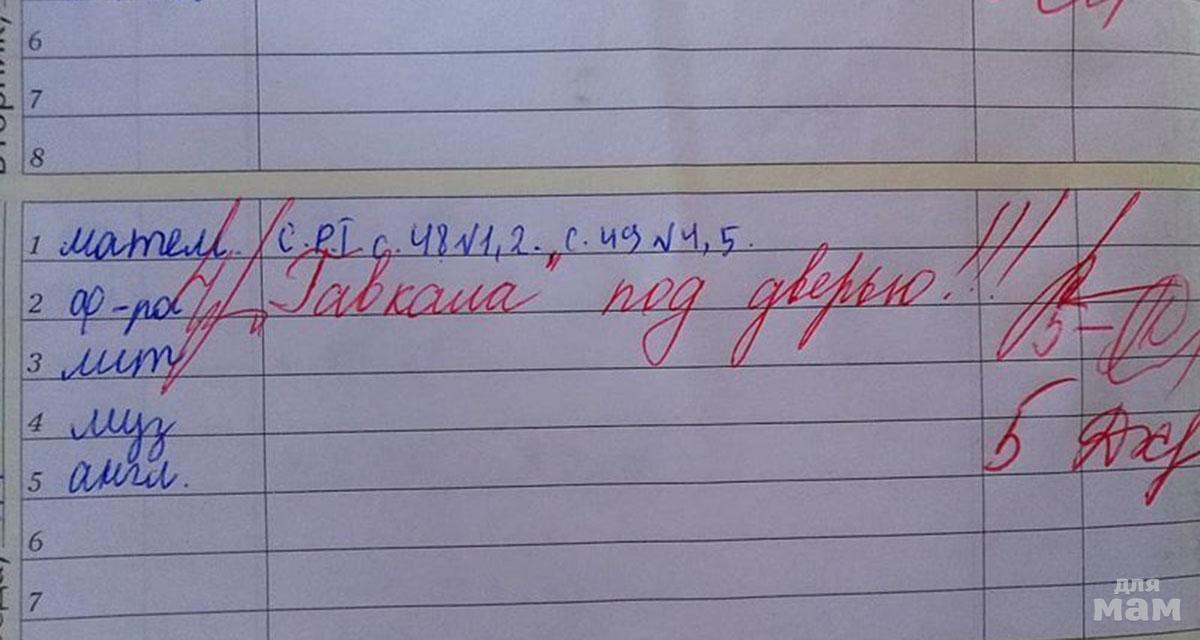 6
7
8
1 матем. С. РТ с. 48 №1, 2. с. 49 №4, 5.
2 ф-ра "Гавкала" под дверью!!!
5-
3 лит
4 муз 5
5 англ.
6
7
для
мам